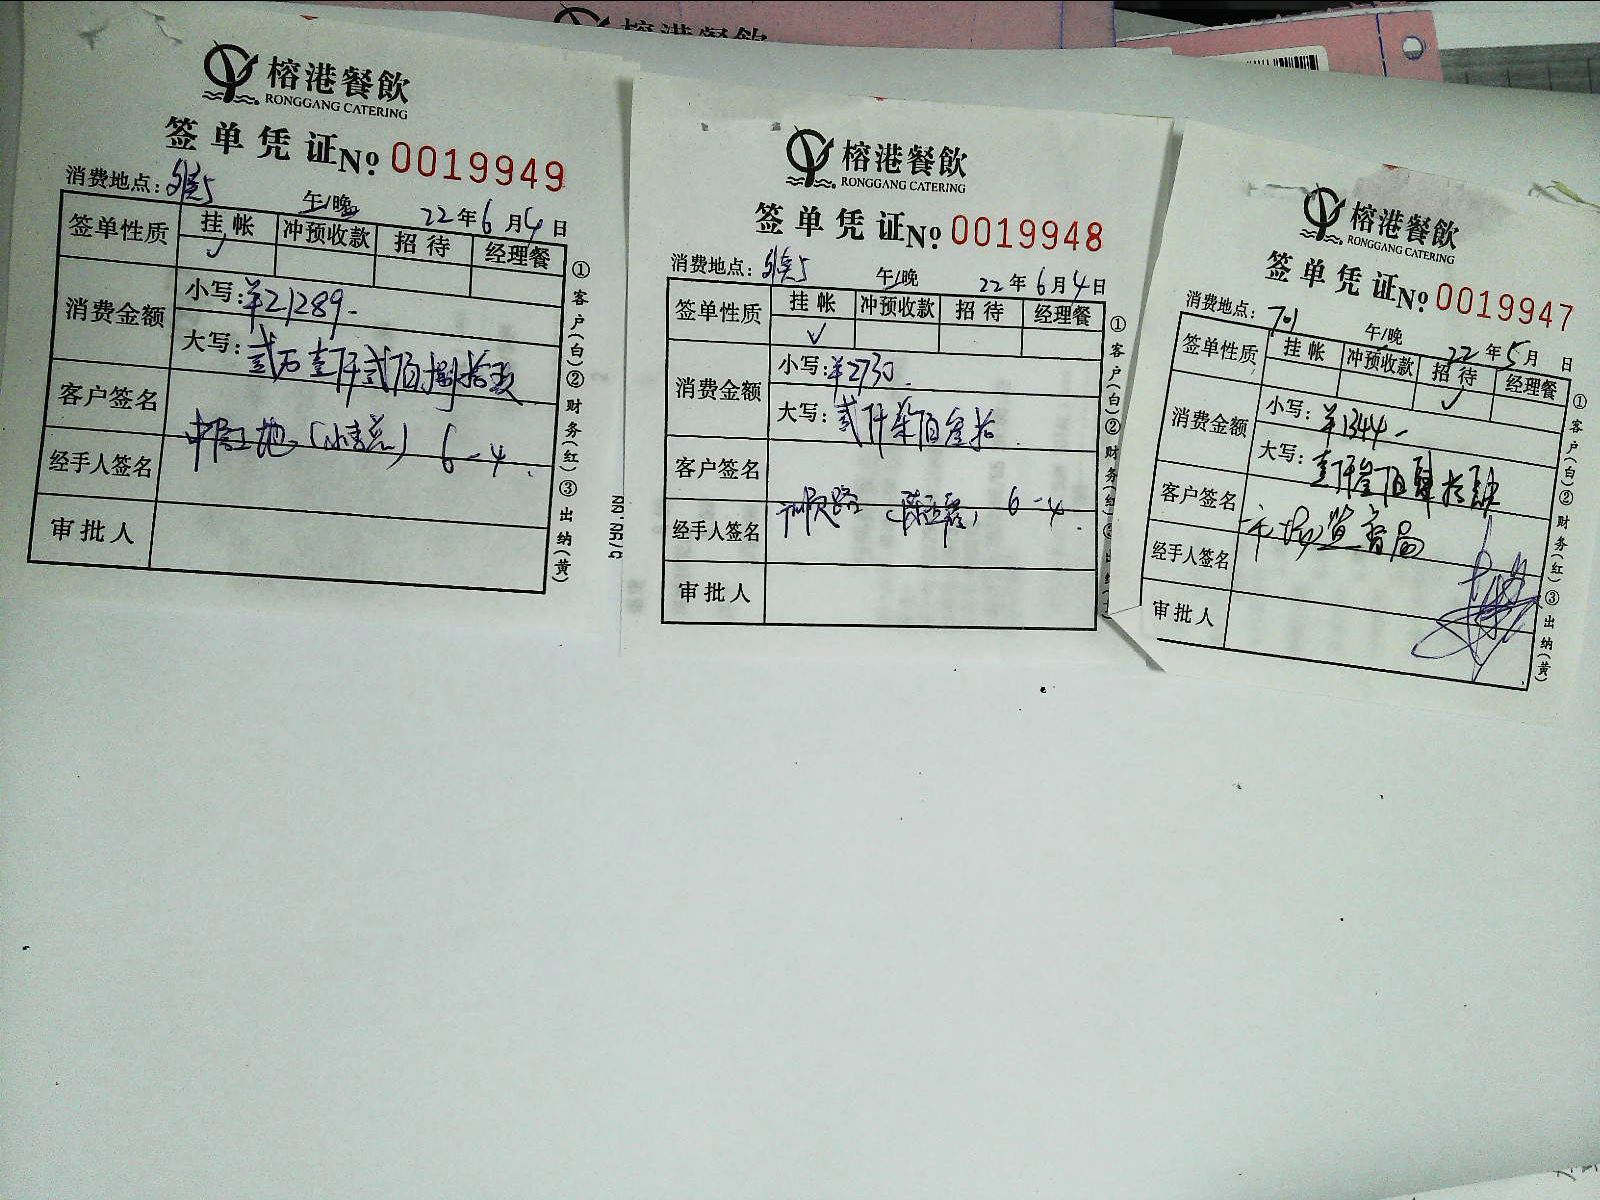 榕港餐飲
榕港餐飲
RONGGANG CATERING
签单凭证 No. 0019949
消费地点:
午/晚 22年6月4日
签单性质 挂帐 冲预收款 招待 经理餐
✓
消费金额 小写:¥21289-
大写:贰万壹仟贰佰捌拾玖
客户签名
经手人签名
6-4.
审批人
①客户(白)②财务(红)③出纳(黄)
榕港餐飲
RONGGANG CATERING
签单凭证 No. 0019948
消费地点:
午/晚 22年6月4日
签单性质 挂帐 冲预收款 招待 经理餐
✓
消费金额 小写:¥2730.
大写:贰仟柒佰叁拾
客户签名
经手人签名
6-4.
审批人
①客户(白)②财务(红)③出
榕港餐飲
RONGGANG CATERING
签单凭证 No. 0019947
消费地点:701
午/晚 22年5月 日
签单性质 挂帐 冲预收款 招待 经理餐
✓
消费金额 小写:¥1344-
大写:壹仟叁佰肆拾肆
客户签名
市场监督局
经手人签名
审批人
①客户(白)②财务(红)③出纳(黄)